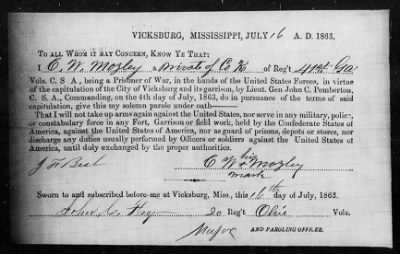 VICKSBURG, MISSISSIPPI, JULY 16 A. D. 1863.
TO ALL WHOM IT MAY CONCERN, KNOW YE THAT:
I C. W. Mozley a Private of Co K of Reg't 41st Ga
Vols. C. S. A., being a Prisoner of War, in the hands of the United States Forces, in virtue
of the capitulation of the City of Vicksburg and its garrison, by Lieut. Gen John C. Pemberton,
C. S. A., Commanding, on the 4th day of July, 1863, do in pursuance of the terms of said
capitulation, give this my solemn parole under oath——
That I will not take up arms again against the United States, nor serve in any military, police,
or constabulary force in any Fort, Garrison or field work, held by the Confederate States of
America, against the United States of America, nor as guard of prisons, depots or stores, nor
discharge any duties usually performed by Officers or soldiers against the United States of
America, until duly exchanged by the proper authorities.
his
C W x Mozley
mark
Sworn to and subscribed before me at Vicksburg, Miss., this 16th day of July, 1863.
John C. Fry 20 Reg't Ohio Vols.
Major AND PAROLING OFFICER.